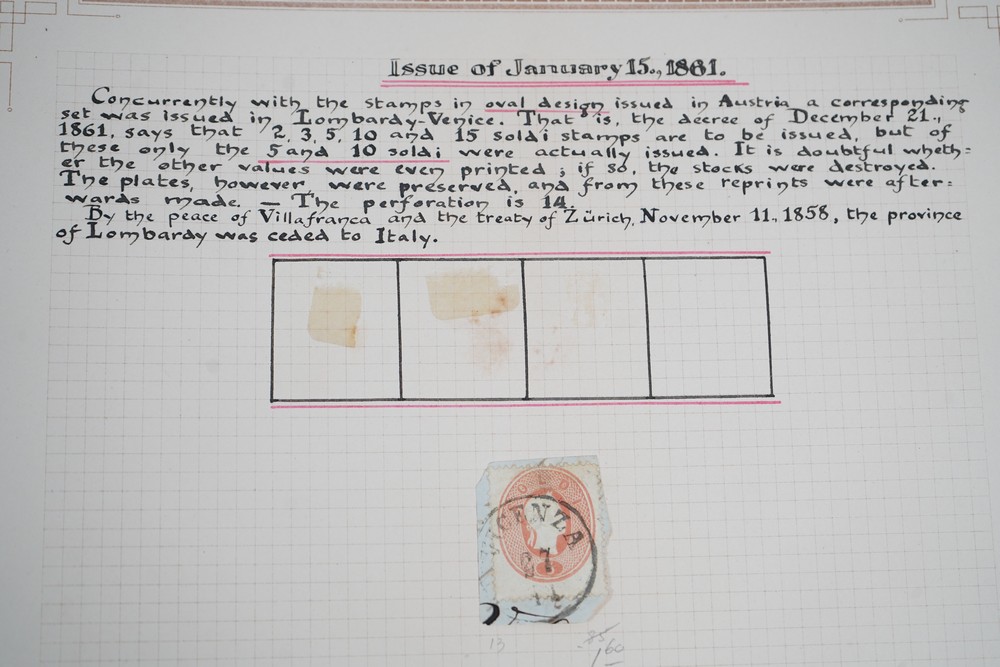 Issue of January 15., 1861.
Concurrently with the stamps in oval design issued in Austria a corresponding
set was issued in Lombardy-Venice. That is, the decree of December 21.,
1861, says that 2, 3, 5, 10 and 15 soldi stamps are to be issued, but of
these only the 5 and 10 soldi were actually issued. It is doubtful wheth=
er the other values were even printed; if so, the stocks were destroyed.
The plates, however, were preserved, and from these reprints were after=
wards made. — The perforation is 14.
By the peace of Villafranca and the treaty of Zürich, November 11., 1858, the province
of Lombardy was ceded to Italy.
SOLDI
VICENZA
13
85
160